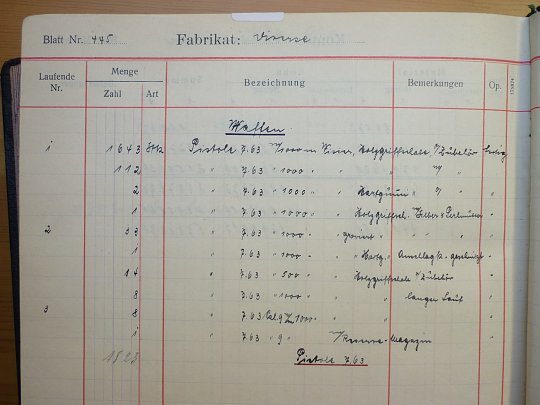 Blatt Nr. 445 Fabrikat: Diverse
Laufende Nr. Menge Bezeichnung Bemerkungen Op.
Zahl Art
Waffen.
1 1643 Stk Pistole 7.63 m/1000 m Visier, Holzgriffschale, m/Zubehör
112 " 7.63 " 1000 " " " "/
2 " 7.63 " 1000 " " Hartgummi " "/ "
1 " 7.63 " 1000 " " Holzgriffsch. "
2 33 " 7.63 " 1000 " graviert " "
1 " 7.63 " 1000 " " Hartg. "
14 " 7.63 " 500 " " Holzgriffschale m/Zubehör "
8 " 7.63 " 1000 " " langer Lauf "
3 8 " 7.63 1000 "
1 " 7.63 " 9 " m/Reserve-Magazin "
1823 Pistole 7.63